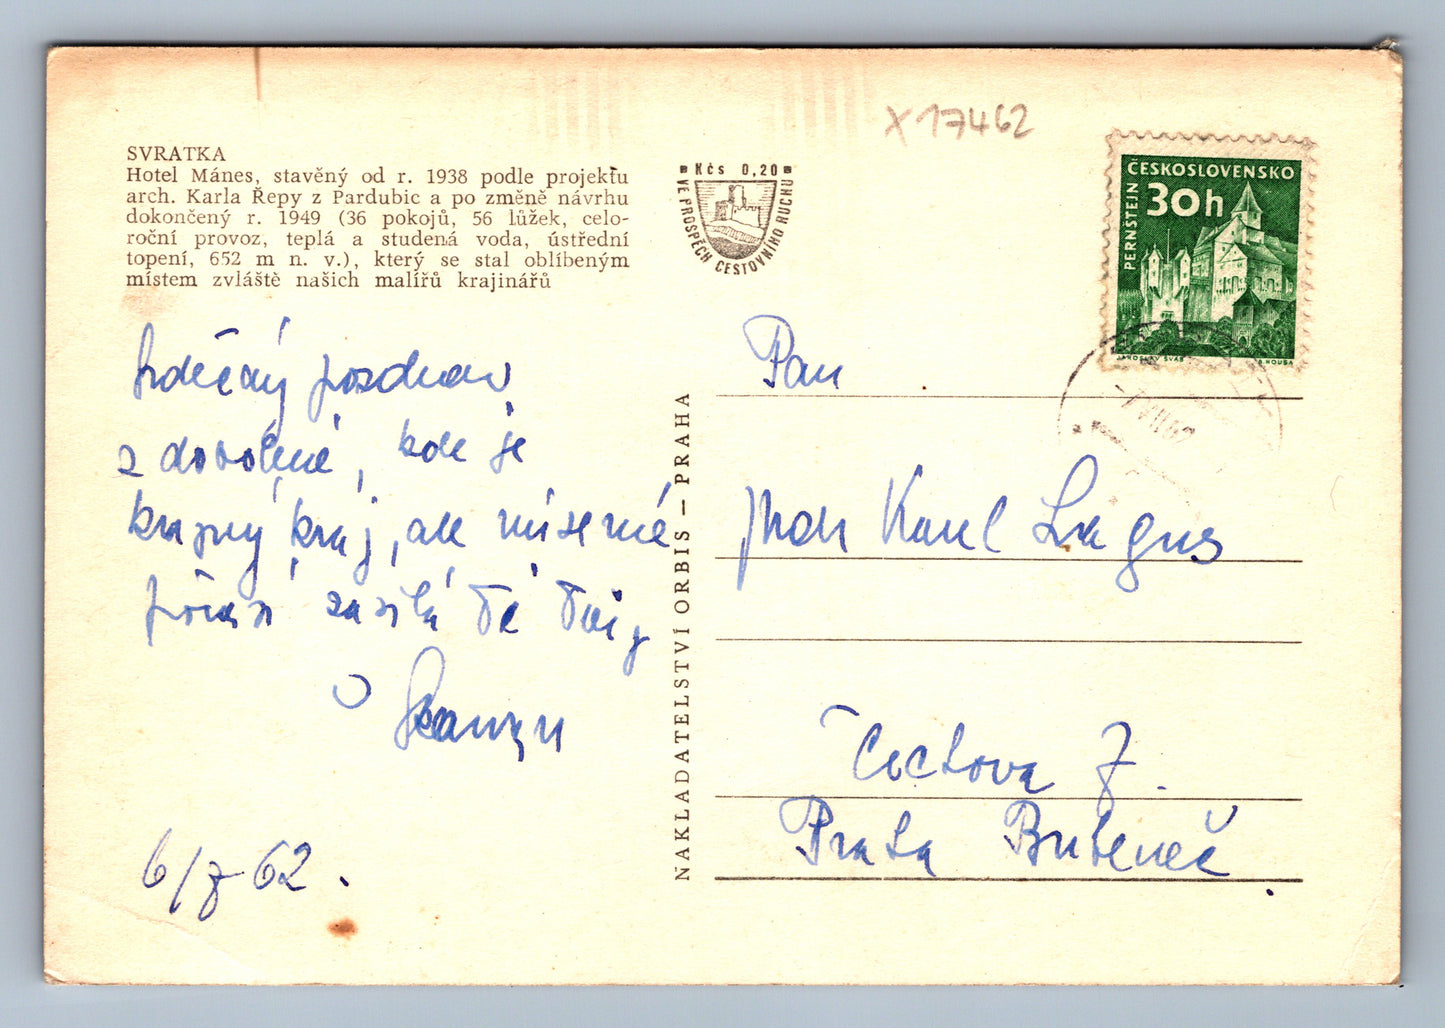 SVRATKA
Hotel Mánes, stavěný od r. 1938 podle projektu
arch. Karla Řepy z Pardubic a po změně návrhu
dokončený r. 1949 (36 pokojů, 56 lůžek, celo-
roční provoz, teplá a studená voda, ústřední
topení, 652 m n. v.), který se stal oblíbeným
místem zvláště našich malířů krajinářů
Kčs 0,20
VE PROSPĚCH CESTOVNÍHO RUCHU
X 17462
ČESKOSLOVENSKO
30h
PERNŠTEJN
JAROSLAV ŠVÁB
B. HOUSA
Srdečný pozdrav
z dovolené, kde je
krásný kraj, ale mizerné
počasí zasílá Tě Tvůj
6/7 62.
NAKLADATELSTVÍ ORBIS – PRAHA
Pan
Karel Lagus
Čechova 7.
Praha Bubeneč.